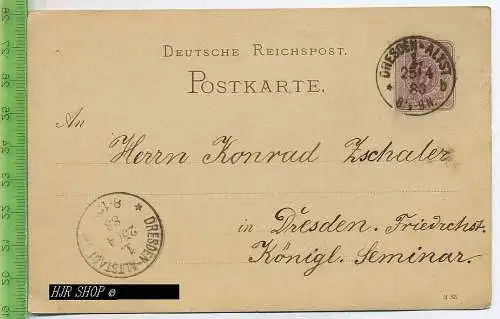 DEUTSCHE REICHSPOST.
POSTKARTE.
DRESDEN-ALTST.
25/4
An
Herrn Konrad Zschaler
in Dresden. Friedrchst.
Königl. Seminar.
DRESDEN-ALTSTADT
1.
25/4
88
8-12V
HJR SHOP ©